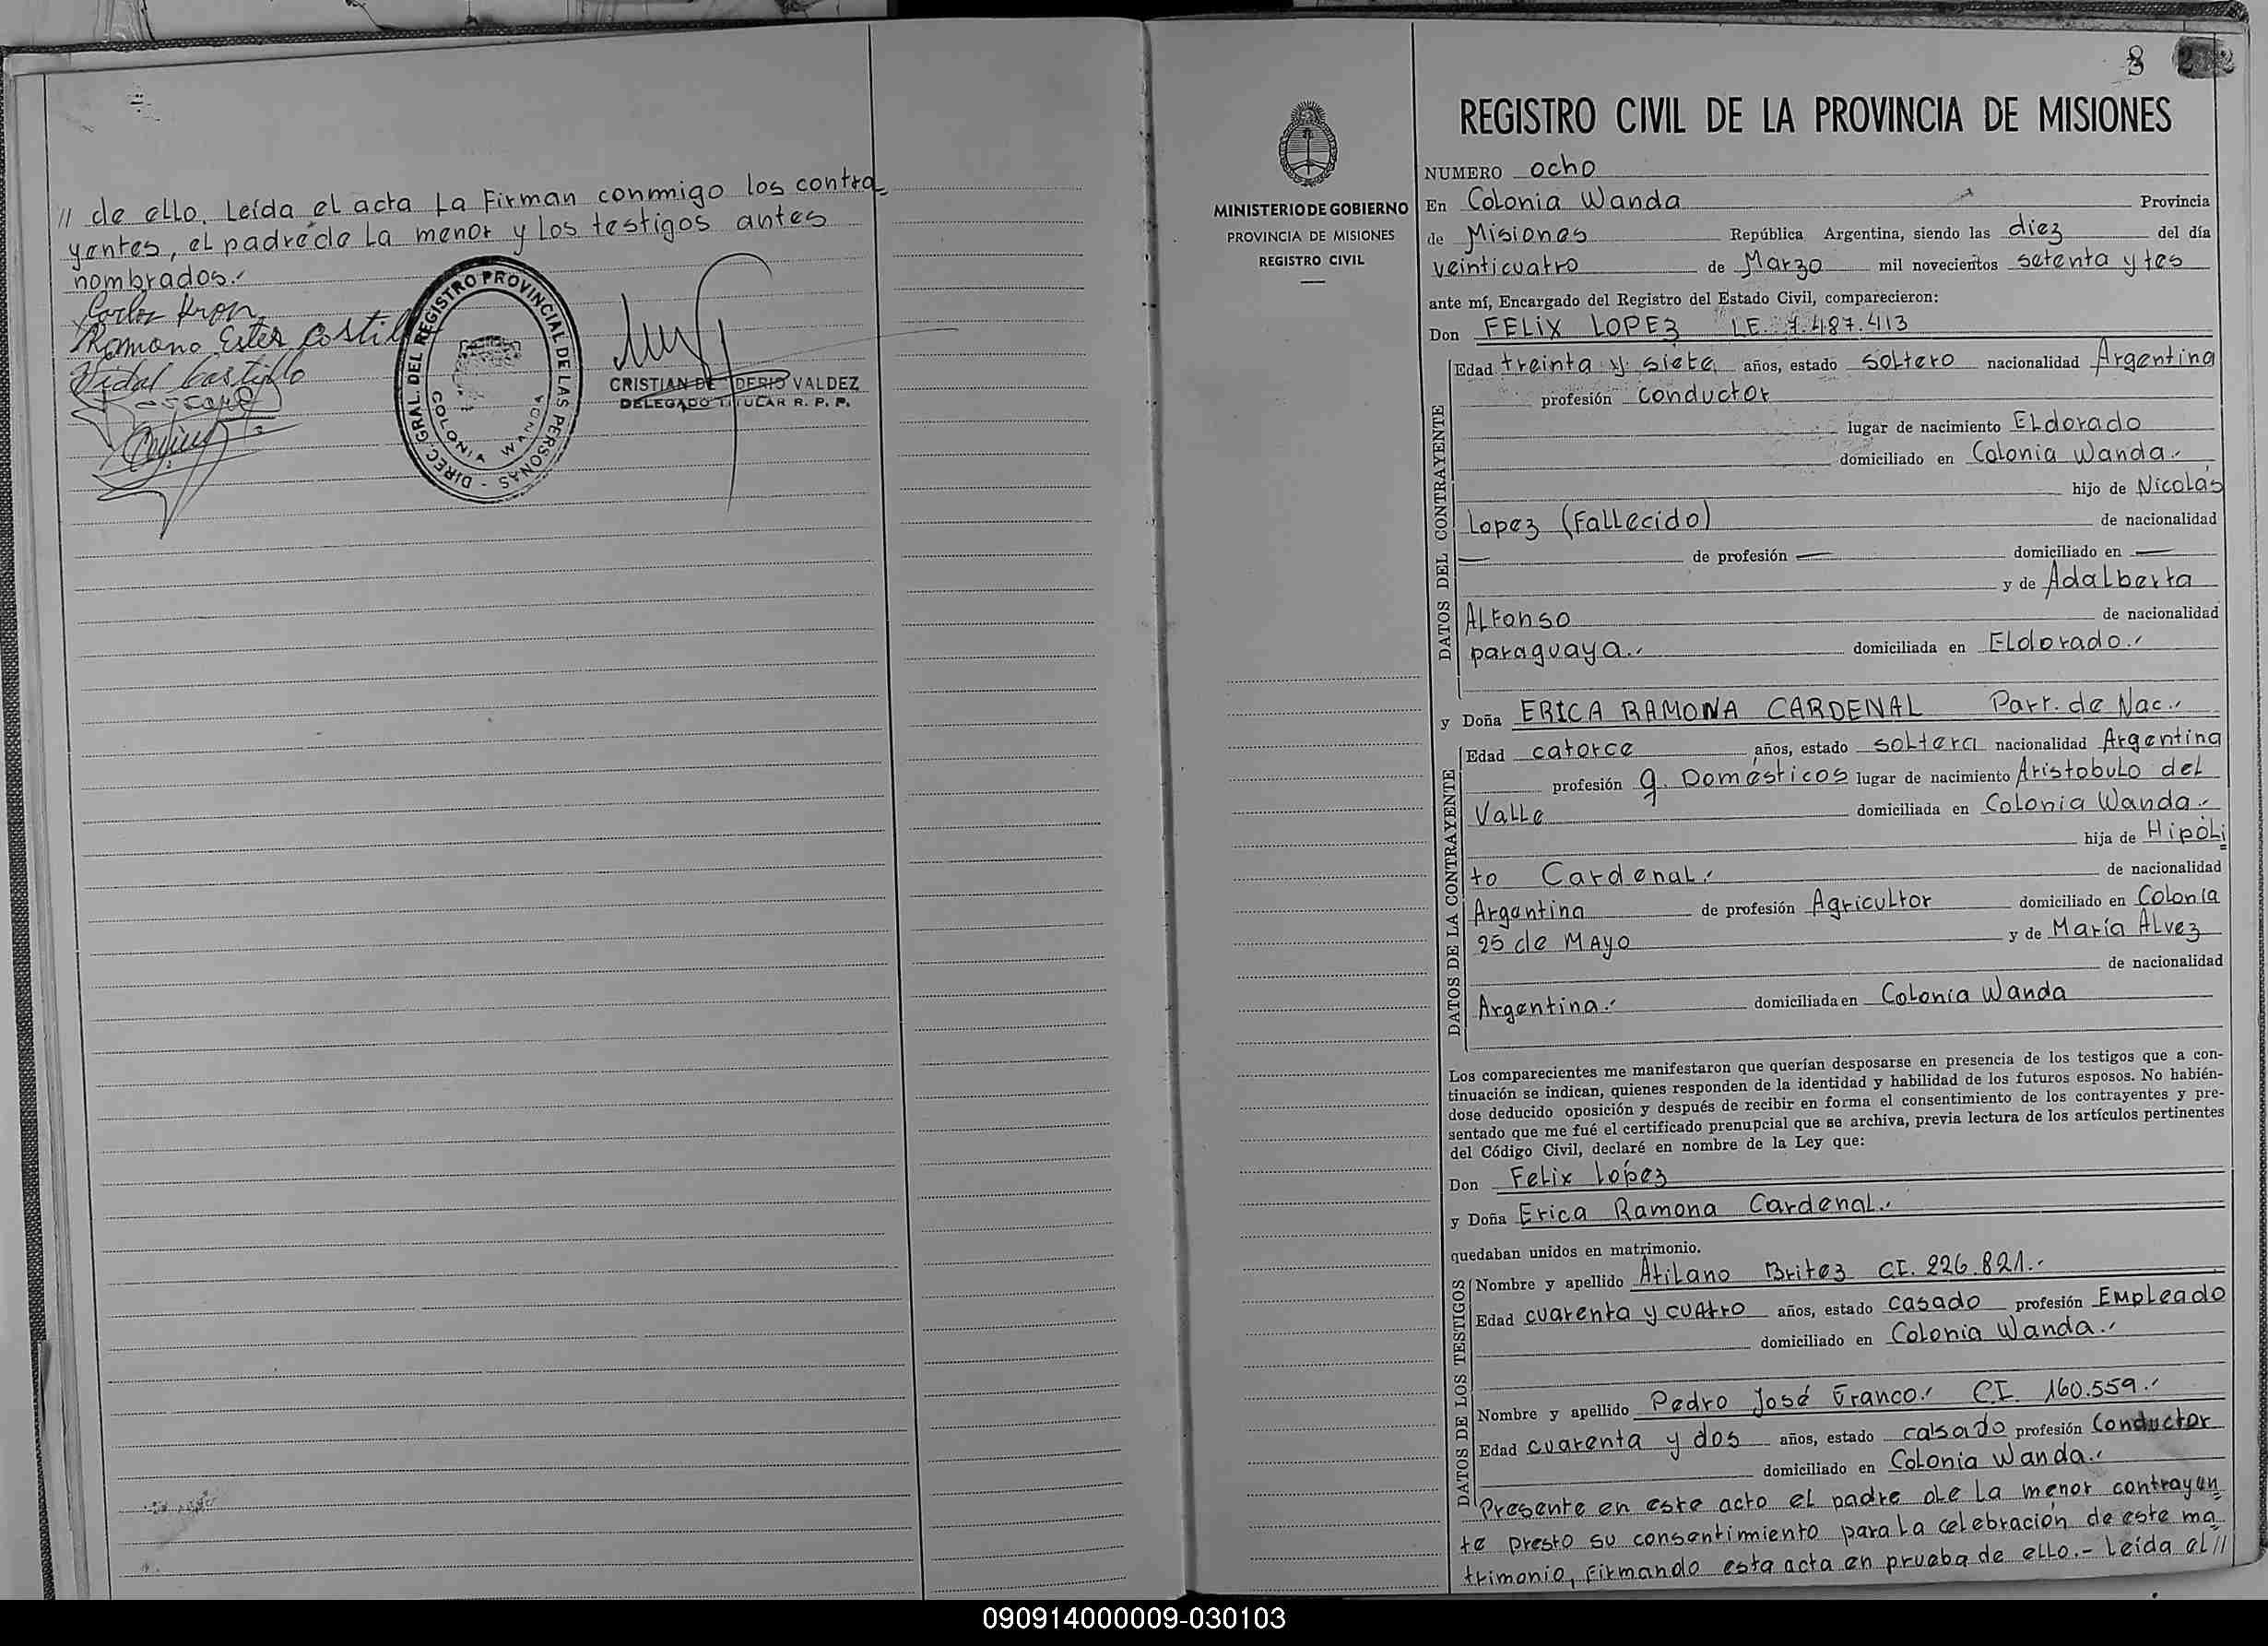 // de ello. Leída el acta La Firman conmigo los contra=
yentes, el padre de La menor y Los testigos antes
nombrados.-
Carlos Kron
Ramona Ester Costil
Vidal Castillo
DIREC. GRAL. DEL REGISTRO PROVINCIAL DE LAS PERSONAS -
COLONIA WANDA
CRISTIAN DE DERIO VALDEZ
DELEGADO TITULAR R. P. P.
8
MINISTERIO DE GOBIERNO
PROVINCIA DE MISIONES
REGISTRO CIVIL
REGISTRO CIVIL DE LA PROVINCIA DE MISIONES
NUMERO ocho
En Colonia Wanda Provincia
de Misiones República Argentina, siendo las diez del día
veinticuatro de Marzo mil novecientos setenta y tes
ante mí, Encargado del Registro del Estado Civil, comparecieron:
Don FELIX LOPEZ LE. 7.487.413
DATOS DEL CONTRAYENTE
Edad treinta y siete años, estado soltero nacionalidad Argentina
profesión conductor
lugar de nacimiento Eldorado
domiciliado en Colonia Wanda.-
hijo de Nicolás
Lopez (Fallecido) de nacionalidad
— de profesión — domiciliado en —
y de Adalberta
Alfonso de nacionalidad
paraguaya.- domiciliada en Eldorado.-
y Doña ERICA RAMONA CARDENAL Part. de Nac.-
DATOS DE LA CONTRAYENTE
Edad catorce años, estado soltera nacionalidad Argentina
profesión q. Domésticos lugar de nacimiento Aristobulo del
Valle domiciliada en Colonia Wanda.-
hija de Hipóli=
to Cardenal.- de nacionalidad
Argentina de profesión Agricultor domiciliado en Colonia
25 de Mayo y de María Alvez
de nacionalidad
Argentina.- domiciliada en Colonia Wanda
Los comparecientes me manifestaron que querían desposarse en presencia de los testigos que a con-
tinuación se indican, quienes responden de la identidad y habilidad de los futuros esposos. No habién-
dose deducido oposición y después de recibir en forma el consentimiento de los contrayentes y pre-
sentado que me fué el certificado prenupcial que se archiva, previa lectura de los artículos pertinentes
del Código Civil, declaré en nombre de la Ley que:
Don Felix López
y Doña Erica Ramona Cardenal.-
quedaban unidos en matrimonio.
DATOS DE LOS TESTIGOS
Nombre y apellido Atilano Britez CI. 226.821.-
Edad cuarenta y cuatro años, estado casado profesión Empleado
domiciliado en Colonia Wanda.-
Nombre y apellido Pedro José Franco.- C.I. 160.559.-
Edad cuarenta y dos años, estado casado profesión Conductor
domiciliado en Colonia Wanda.-
Presente en este acto el padre de la menor contrayen=
te presto su consentimiento para la celebración de este ma=
trimonio, firmando esta acta en prueba de ello.- Leída el //
090914000009-030103